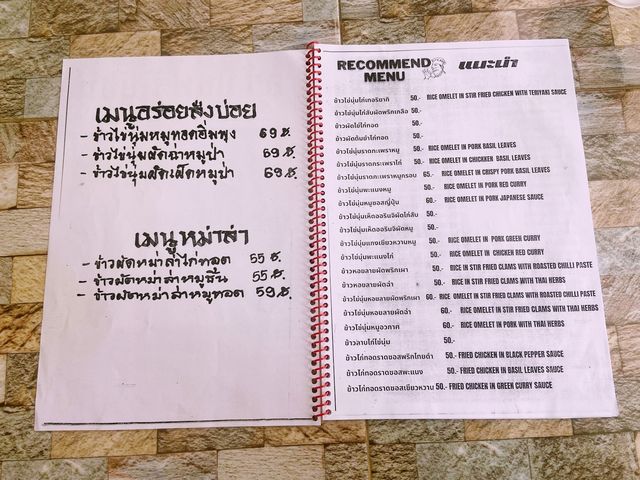 เมนูอร่อยสั่งบ่อย
- ข้าวไข่นุ่มหมูทอดอิ่มพุง 69 ฿.
- ข้าวไข่นุ่มผัดฉ่าหมูป่า 69 ฿.
- ข้าวไข่นุ่มผัดเผ็ดหมูป่า 69 ฿.
เมนูหม่าล่า
- ข้าวผัดหม่าล่าไก่ทอด 55 ฿.
- ข้าวผัดหม่าล่าหมูชิ้น 55 ฿.
- ข้าวผัดหม่าล่าหมูทอด 59 ฿.
RECOMMEND MENU แนะนำ
ข้าวไข่นุ่มไก่เทอริยากิ 50.- RICE OMELET IN STIR FRIED CHICKEN WITH TERIYAKI SAUCE
ข้าวไข่นุ่มไก่สับผัดพริกเกลือ 50.-
ข้าวผัดไข่ไก่ทอด 50.-
ข้าวผัดต้มยำไก่ทอด 50.-
ข้าวไข่นุ่มราดกะเพราหมู 50.- RICE OMELET IN PORK BASIL LEAVES
ข้าวไข่นุ่มราดกะเพราไก่ 50.- RICE OMELET IN CHICKEN BASIL LEAVES
ข้าวไข่นุ่มราดกะเพราหมูกรอบ 65.- RICE OMELET IN CRISPY PORK BASIL LEAVES
ข้าวไข่นุ่มพะแนงหมู 50.- RICE OMELET IN PORK RED CURRY
ข้าวไข่นุ่มหมูซอสญี่ปุ่น 60.- RICE OMELET IN PORK JAPANESE SAUCE
ข้าวไข่นุ่มเห็ดออรินจิผัดไก่สับ 50.-
ข้าวไข่นุ่มเห็ดออรินจิผัดหมู 50.-
ข้าวไข่นุ่มแกงเขียวหวานหมู 50.- RICE OMELET IN PORK GREEN CURRY
ข้าวไข่นุ่มพะแนงไก่ 50.- RICE OMELET IN CHICKEN RED CURRY
ข้าวหอยลายผัดพริกเผา 50.- RICE IN STIR FRIED CLAMS WITH ROASTED CHILLI PASTE
ข้าวหอยลายผัดฉ่า 50.- RICE IN STIR FRIED CLAMS WITH THAI HERBS
ข้าวไข่นุ่มหอยลายผัดพริกเผา 60.- RICE OMELET IN STIR FRIED CLAMS WITH ROASTED CHILLI PASTE
ข้าวไข่นุ่มหอยลายผัดฉ่า 60.- RICE OMELET IN STIR FRIED CLAMS WITH THAI HERBS
ข้าวไข่นุ่มหมูอวกาศ 60.- RICE OMELET IN PORK WITH THAI HERBS
ข้าวลาบไก่ไข่นุ่ม 50.-
ข้าวไก่ทอดราดซอสพริกไทยดำ 50.- FRIED CHICKEN IN BLACK PEPPER SAUCE
ข้าวไก่ทอดราดซอสพะแนง 50.- FRIED CHICKEN IN BASIL LEAVES SAUCE
ข้าวไก่ทอดราดซอสเขียวหวาน 50.- FRIED CHICKEN IN GREEN CURRY SAUCE